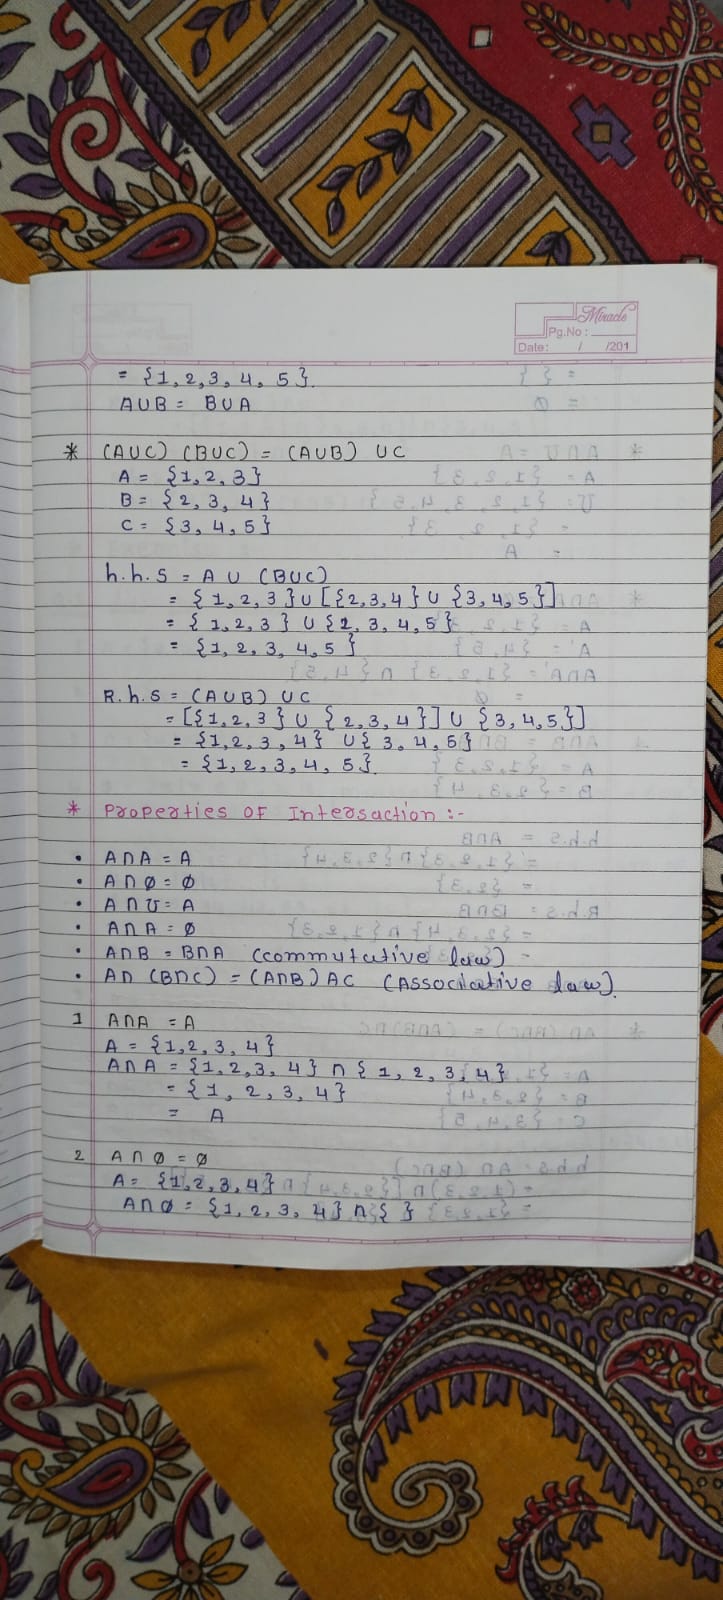 Miracle
Pg.No :
Date: / /201
= {1, 2, 3, 4, 5}.
A∪B = B∪A
* (A∪C) (B∪C) = (A∪B) ∪C
A = {1, 2, 3}
B = {2, 3, 4}
C = {3, 4, 5}
h.h.s = A ∪ (B∪C)
= {1, 2, 3} ∪ [{2, 3, 4} ∪ {3, 4, 5}]
= {1, 2, 3} ∪ {2, 3, 4, 5}
= {1, 2, 3, 4, 5}
R.h.s = (A∪B) ∪C
= [{1, 2, 3} ∪ {2, 3, 4}] ∪ {3, 4, 5}]
= {1, 2, 3, 4} ∪{ 3, 4, 5}
= {1, 2, 3, 4, 5}.
* Properties OF Intersaction :-
• A∩A = A
• A∩Ø = Ø
• A∩U = A
• A∩A = Ø
• A∩B = B∩A (commutative law)
• A∩ (B∩C) = (A∩B) AC (Associative law).
1 A∩A = A
A = {1, 2, 3, 4}
A∩A = {1, 2, 3, 4} ∩ {1, 2, 3, 4}
= {1, 2, 3, 4}
= A
2 A∩Ø = Ø
A = {1, 2, 3, 4}
A∩Ø = {1, 2, 3, 4} ∩ { }